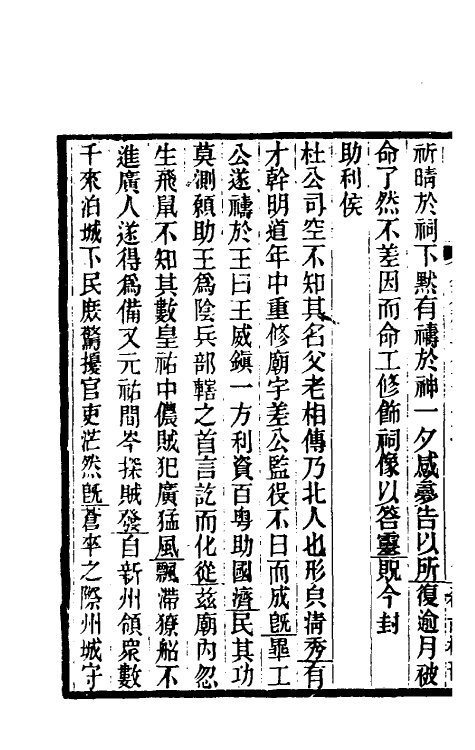 祈晴於祠下默有禱於神一夕感夢告以所復逾月被
命了然不差因而命工修飾祠像以答靈貺今封
助利侯
杜公司空不知其名父老相傳乃北人也形皃淸秀有
才幹明道年中重修廟宇差公監役不日而成旣畢工
公遂禱於王曰王威鎭一方利資百粤助國濟民其功
莫測願助王爲陰兵部轄之首言訖而化從茲廟內忽
生飛鼠不知其數皇祐中儂賊犯廣猛風飄滯獠船不
進廣人遂得爲備又元祐間岑探賊發自新州領衆數
千來泊城下民庶驚擾官吏茫然旣蒼卒之際州城守